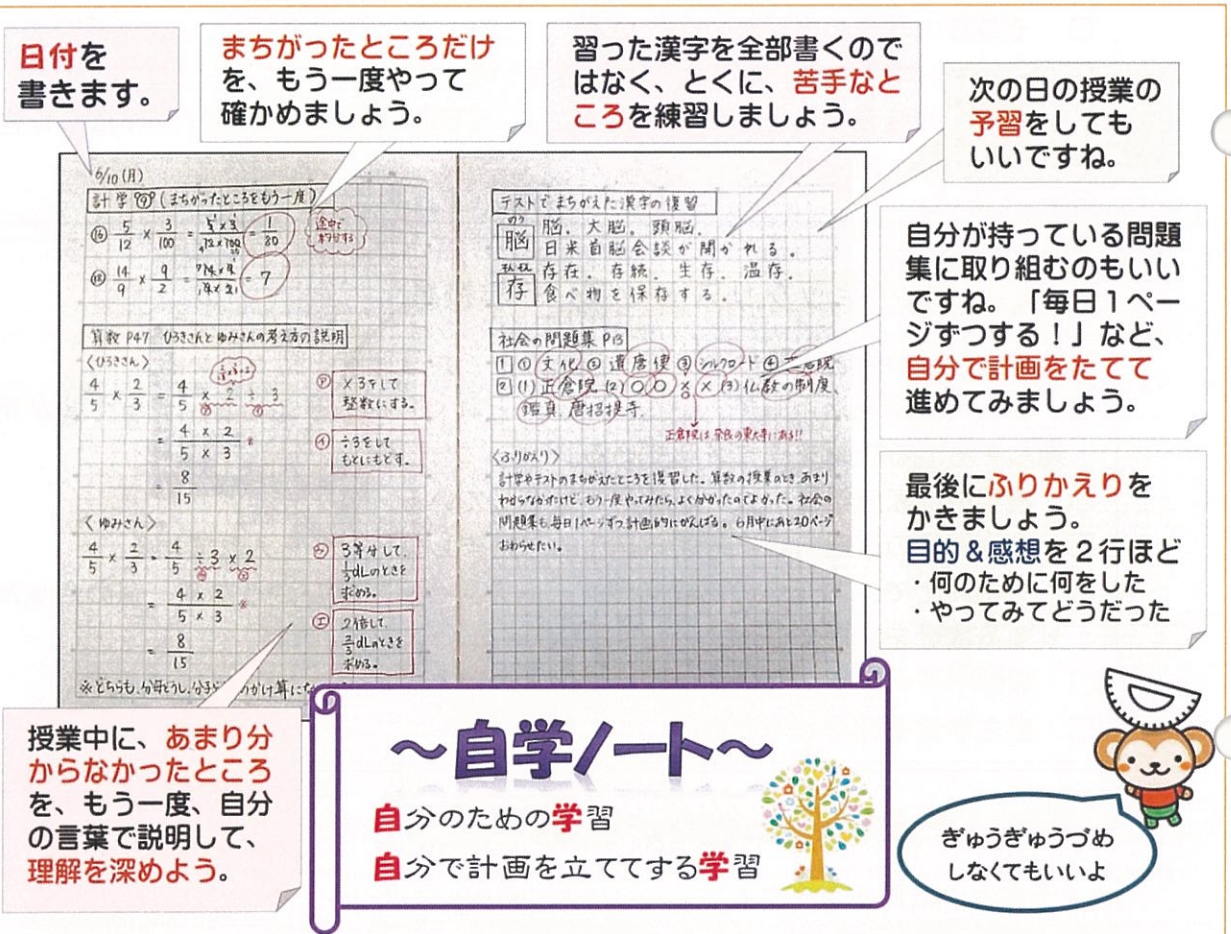 日付を
書きます。
まちがったところだけ
を、もう一度やって
確かめましょう。
習った漢字を全部書くので
はなく、とくに、苦手なと
ころを練習しましょう。
次の日の授業の
予習をしても
いいですね。
自分が持っている問題
集に取り組むのもいい
ですね。「毎日1ペー
ジずつする!」など、
自分で計画をたてて
進めてみましょう。
最後にふりかえりを
かきましょう。
目的&感想を2行ほど
・何のために何をした
・やってみてどうだった
6/10(月)
計学⑨(まちがったところをもう一度)
⑯ 5/12 × 3/100 = 5×3/12×100 = 1/80
途中で
約分する
⑱ 14/9 × 9/2 = = 7
算数 P47 ひろきさんとゆみさんの考え方の説明
〈ひろきさん〉
4/5 × 2/3 = 4/5 × 2 ÷ 3
= 4×2/5×3
= 8/15
㋐ ×3をして
整数にする。
㋑ ÷3をして
もとにもどす。
〈ゆみさん〉
4/5 × 2/3 = 4/5 ÷ 3 × 2
= 4×2/5×3
= 8/15
㋒ 3等分して、
1/3dLのときを
求める。
㋓ 2倍して
2/3dLのときを
求める。
※どちらも、分母どうし、分子
のかけ算にな
テストでまちがえた漢字の復習
のう
脳 脳。大脳。頭脳。
日米首脳会談が開かれる。
そんぞん
存 存在。存続。生存。温存。
食べ物を保存する。
社会の問題集 P13
1 ①文化 ②遣唐使 ③シルクロード ④正倉院
2 (1)正倉院 (2)○ ○ × × (3)仏教の制度、
鑑真、唐招提寺。
正倉院は奈良の東大寺にある!!
〈ふりかえり〉
計学やテストのまちがえたところを復習した。算数の授業のとき、あまり
わからなかったけど、もう一度やってみたら、よく分かったのでよかった。社会の
問題集も毎日1ページずつ計画的にがんばる。6月中にあと20ページ
おわらせたい。
授業中に、あまり分
からなかったところ
を、もう一度、自分
の言葉で説明して、
理解を深めよう。
~自学ノート~
自分のための学習
自分で計画を立ててする学習
ぎゅうぎゅうづめ
しなくてもいいよ